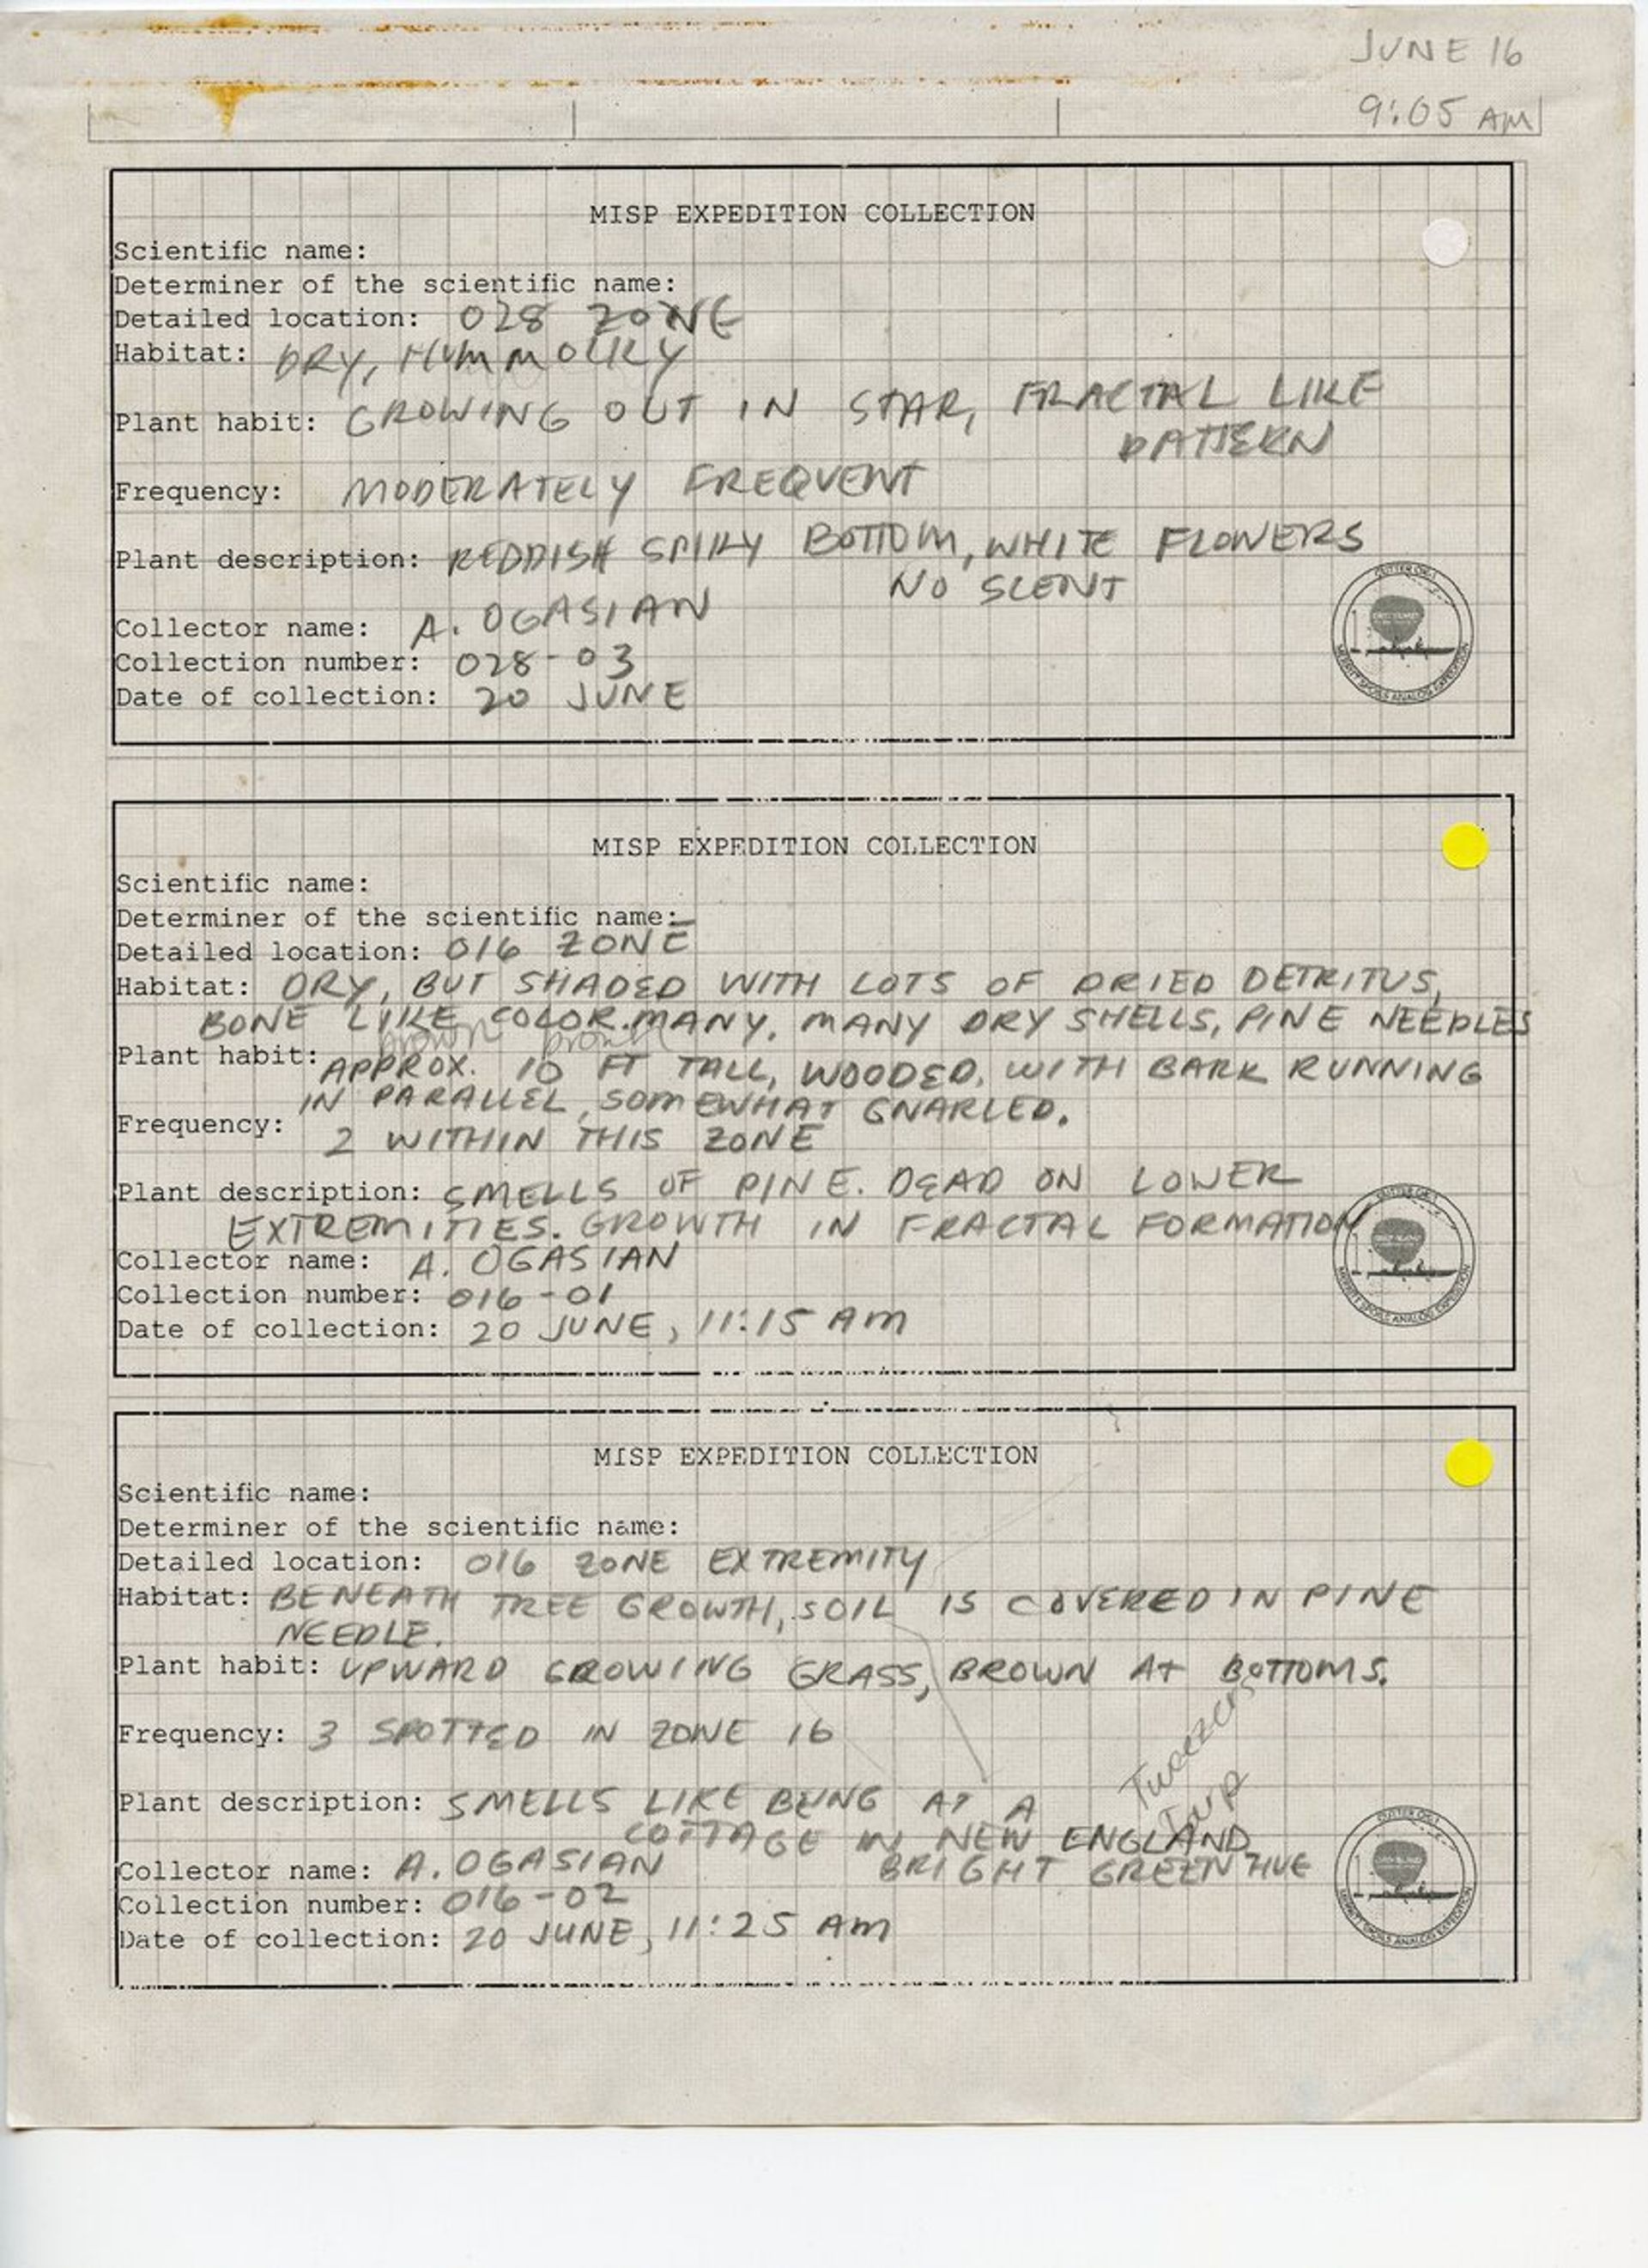 JUNE 16
9:05 AM
MISP EXPEDITION COLLECTION
Scientific name:
Determiner of the scientific name:
Detailed location: 028 ZONE
Habitat: DRY, HUMMOCKY
Plant habit: GROWING OUT IN STAR, FRACTAL LIKE
PATTERN
Frequency: MODERATELY FREQUENT
Plant description: REDDISH SPIKY BOTTOM, WHITE FLOWERS
NO SCENT
Collector name: A. OGASIAN
Collection number: 028-03
Date of collection: 20 JUNE
MERRITT SPOILS ANALOG EXPEDITION
MISP EXPEDITION COLLECTION
Scientific name:
Determiner of the scientific name:
Detailed location: 016 ZONE
Habitat: DRY, BUT SHADED WITH LOTS OF DRIED DETRITUS,
BONE LIKE COLOR. MANY, MANY DRY SHELLS, PINE NEEDLES
brown brown
Plant habit: APPROX. 10 FT TALL, WOODED, WITH BARK RUNNING
IN PARALLEL, SOMEWHAT GNARLED.
Frequency: 2 WITHIN THIS ZONE
Plant description: SMELLS OF PINE. DEAD ON LOWER
EXTREMITIES. GROWTH IN FRACTAL FORMATION
Collector name: A. OGASIAN
Collection number: 016-01
Date of collection: 20 JUNE, 11:15 AM
MERRITT SPOILS ANALOG EXPEDITION
MISP EXPEDITION COLLECTION
Scientific name:
Determiner of the scientific name:
Detailed location: 016 ZONE EXTREMITY
Habitat: BENEATH TREE GROWTH, SOIL IS COVERED IN PINE
NEEDLE.
Plant habit: UPWARD GROWING GRASS, BROWN AT BOTTOMS.
Frequency: 3 SPOTTED IN ZONE 16
Tweezers
Tarp
Plant description: SMELLS LIKE BEING AT A
COTTAGE IN NEW ENGLAND
BRIGHT GREEN HUE
Collector name: A. OGASIAN
Collection number: 016-02
Date of collection: 20 JUNE, 11:25 AM
MERRITT SPOILS ANALOG EXPEDITION